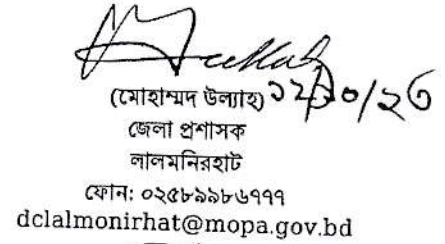 (মোহাম্মদ উল্যাহ)
জেলা প্রশাসক
লালমনিরহাট
ফোন: ০২৫৮৯৯৮৬৭৭৭
dclalmonirhat@mopa.gov.bd